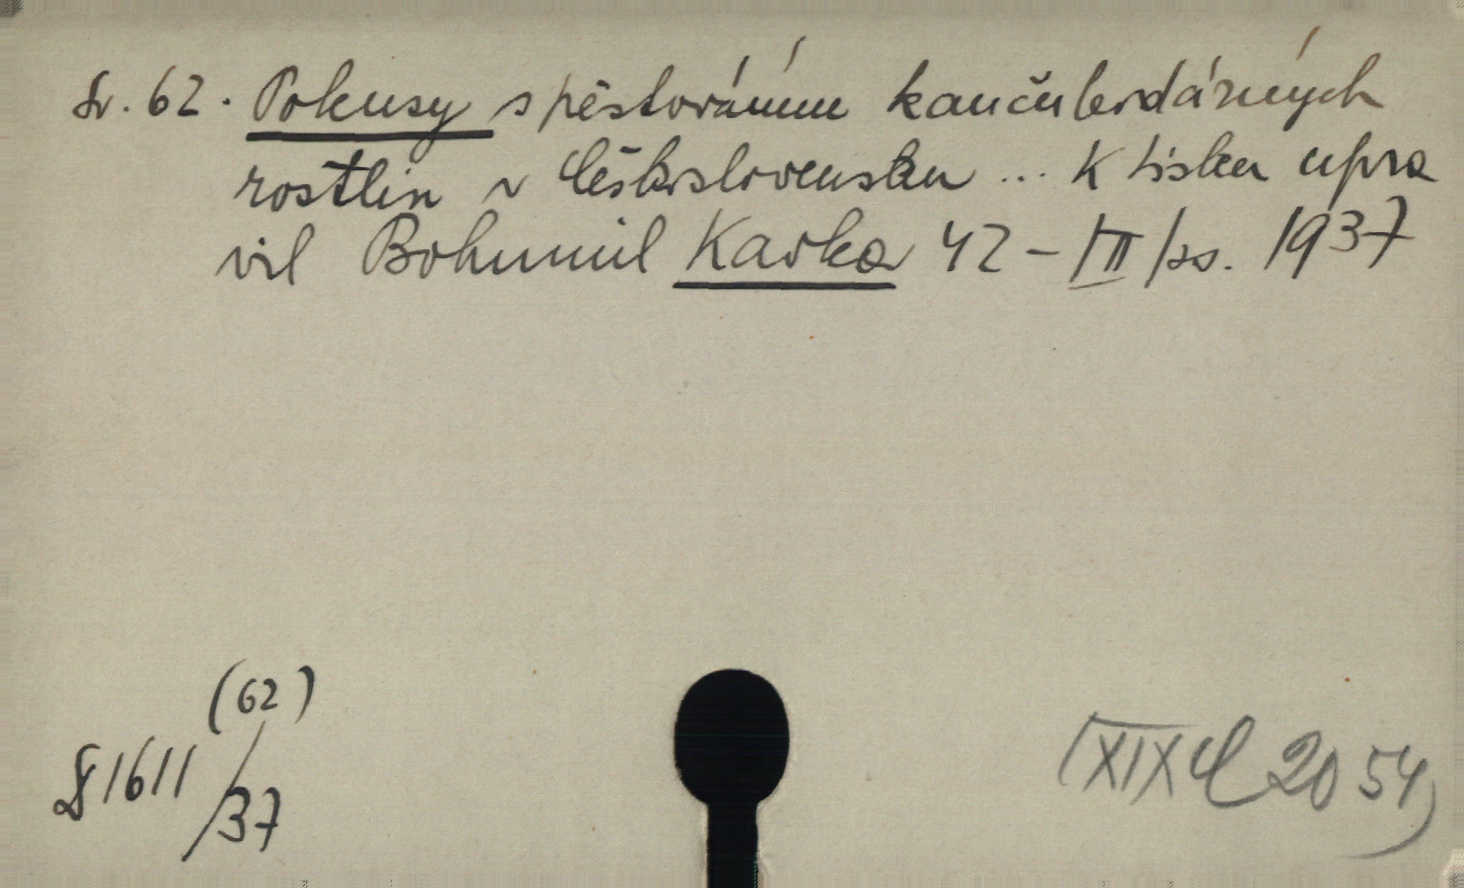 Sv. 62. Pokusy s pěstováním kaučukodárných
rostlin v Československu ... K tisku upra
vil Bohumil Kavka 42 – III /ss. 1937
(62)
1611/37
(XIX 2054)